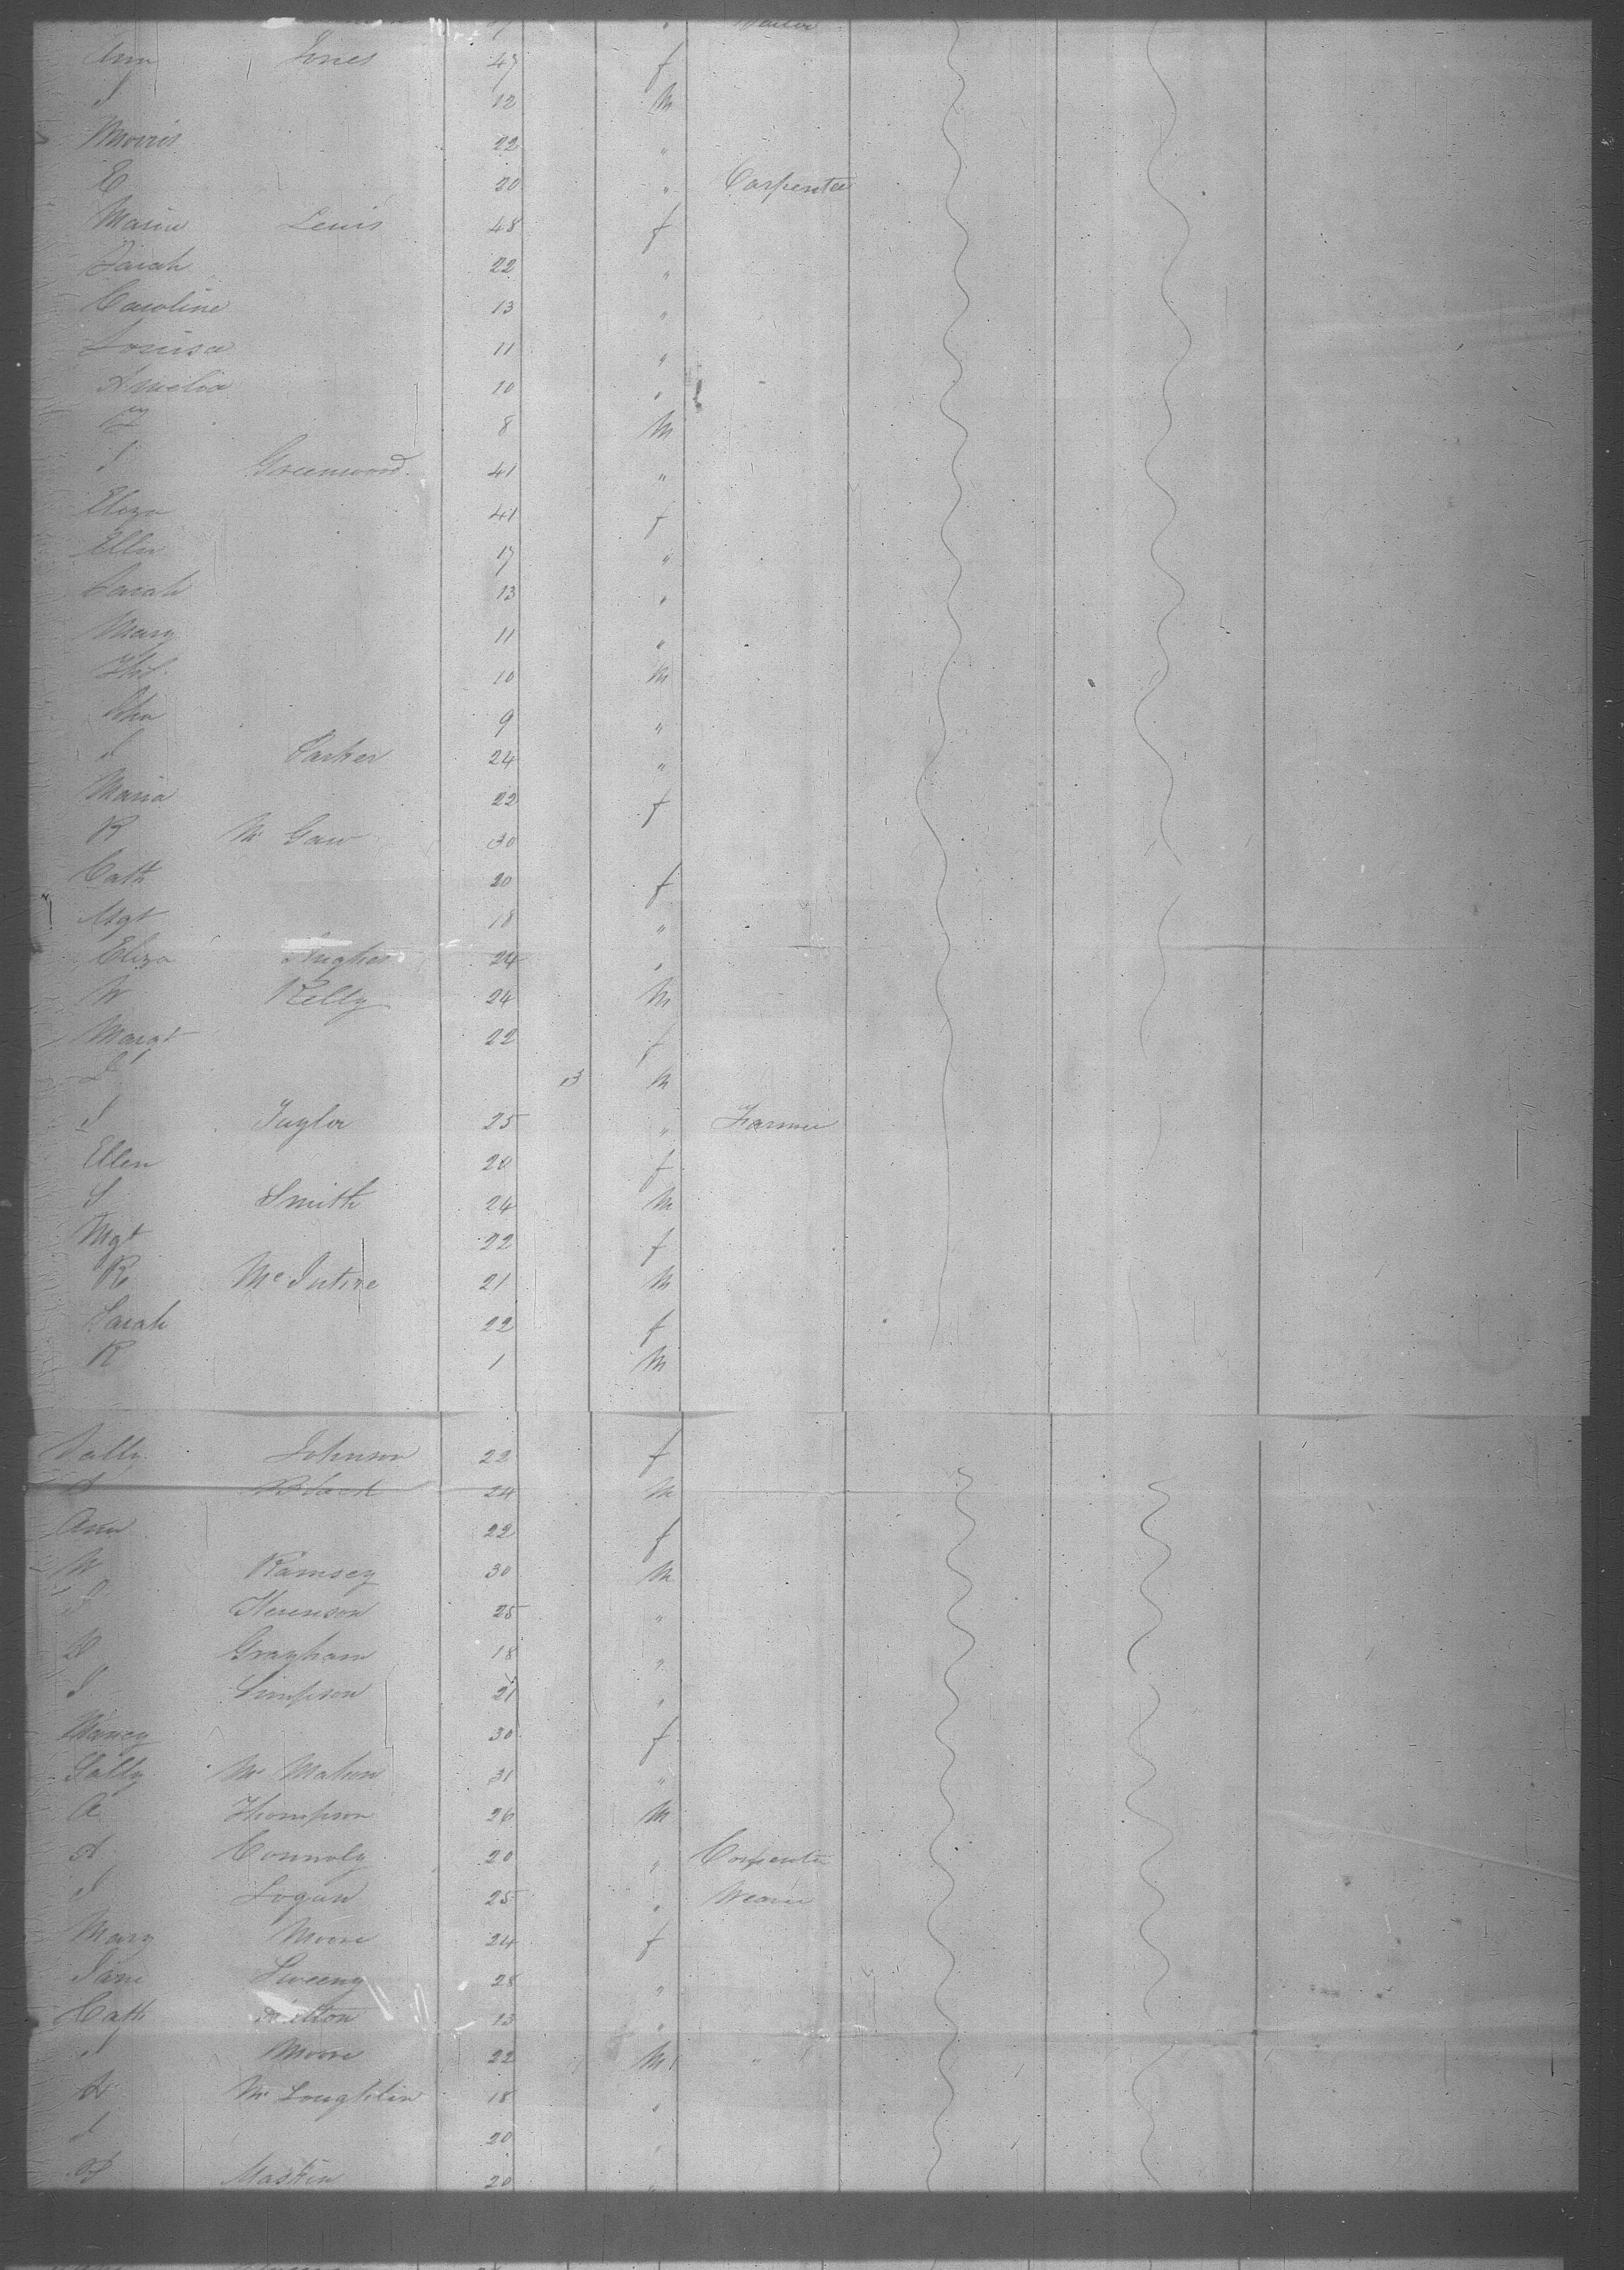 Ann Jones 47 f
J 12 M
Morris 22 "
E 20 " Carpenter
Maria Lewis 48 f
Sarah 22 "
Caroline 13 "
Louisa 11 "
Amelia 10 "
8 M
J Greenwood 41 "
Eliza 41 f
Ellen 17 "
Sarah 13 "
Mary 11 "
Thos 10 M
John 9 "
J Parker 24 "
Maria 22 f
R Mc Gaw 30
Cath 20 f
Mgt 18 "
Eliza Hughes 24 "
W Kelly 24 M
Margt 22 f
13 M
J Taylor 25 " Farmer
Ellen 20 f
S Smith 24 M
Mgt 22 f
R Mc Intire 21 M
Sarah 22 f
R 1 M
Sally Johnson 22 f
A Black 24 M
Ann 22 f
W Ramsey 30 M
25 "
Grayham 18 "
J Simpson 21 "
Nancy 30 f
Sally Mc Mahon 31 "
A Thompson 26 M
A Connoly 20 " Carpenter
J Logan 25 " Weaver
Mary Moore 24 f
Jane Sweeny 28 "
Cath 13 "
J Moore 22 M "
Mc Loughlin 18 "
J 20 "
Maskin 20 "